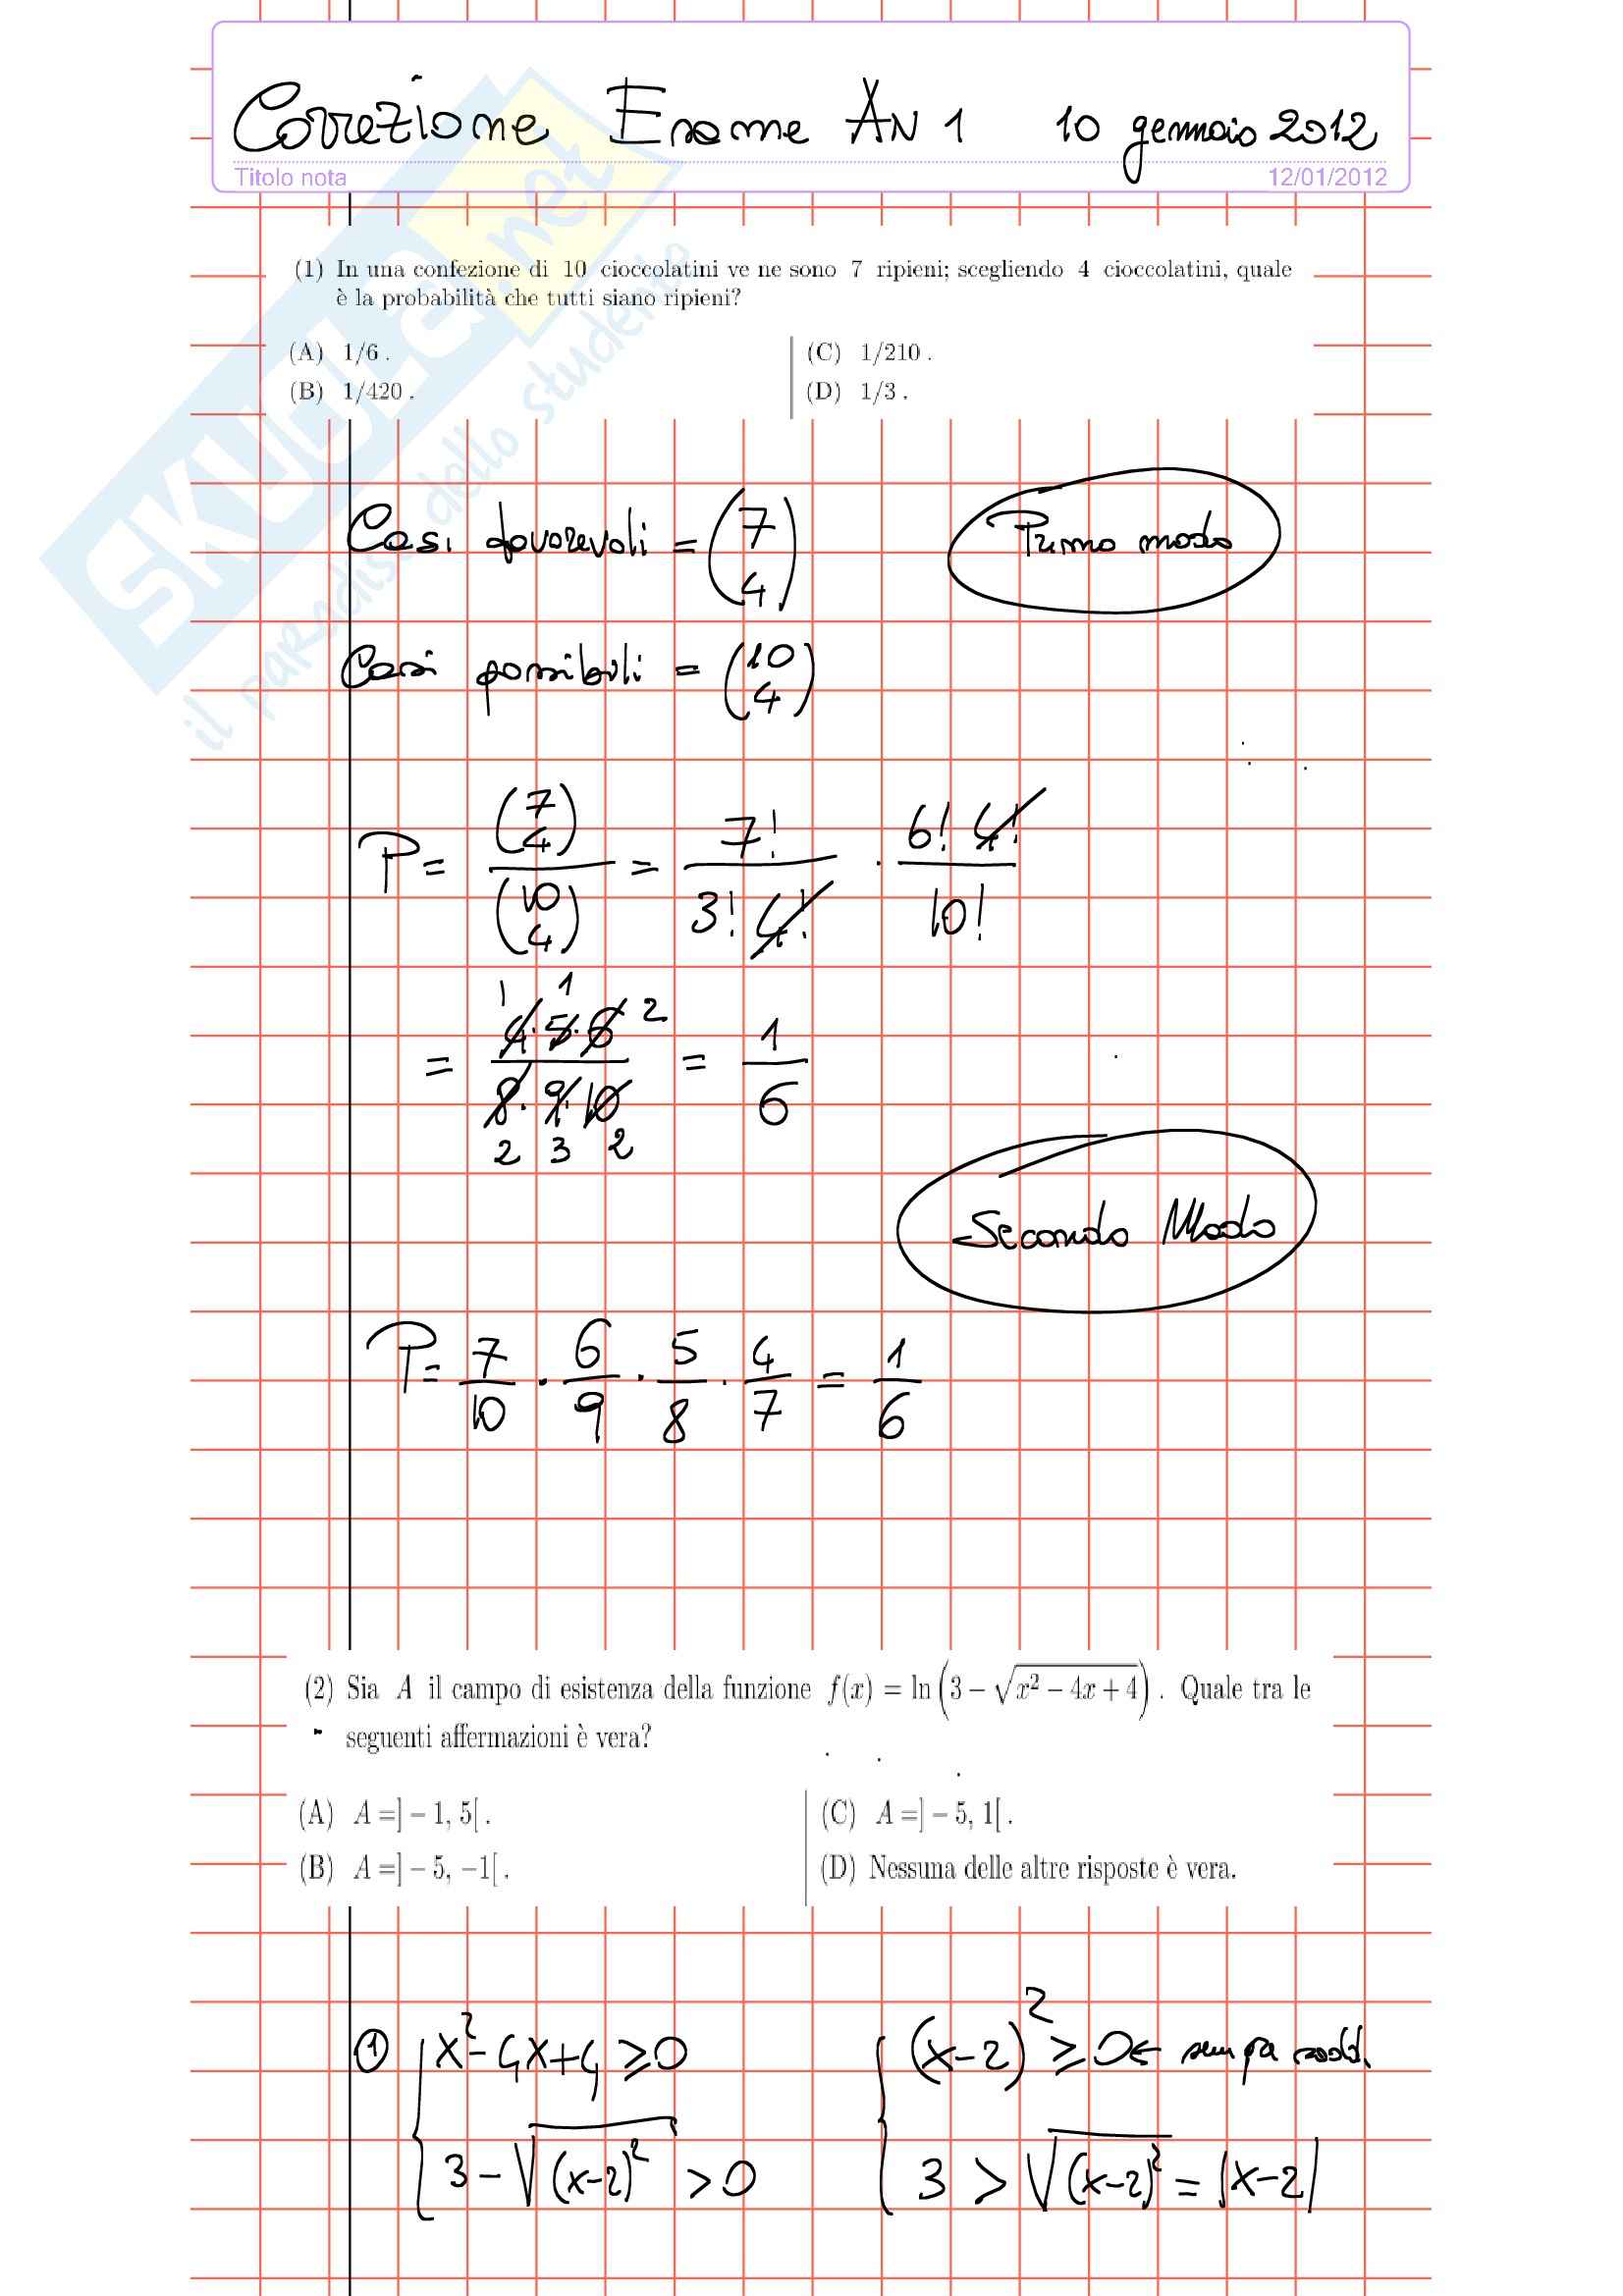 Correzione Esame AN 1 10 gennaio 2012
Titolo nota 12/01/2012
SKUOLA.net
il paradiso dello studente
(1) In una confezione di 10 cioccolatini ve ne sono 7 ripieni; scegliendo 4 cioccolatini, quale
è la probabilità che tutti siano ripieni?
(A) 1/6 . (C) 1/210 .
(B) 1/420 . (D) 1/3 .
Casi favorevoli = (7 4) Primo modo
Casi possibili = (10 4)
P = (7 4)/(10 4) = 7!/(3! 4!) · 6! 4!/10!
1 1 2
= 4·5·6/8·9·10 = 1/6
2 3 2
Secondo Modo
P = 7/10 · 6/9 · 5/8 · 4/7 = 1/6
(2) Sia A il campo di esistenza della funzione f(x) = ln(3 − √(x² − 4x + 4)) . Quale tra le
seguenti affermazioni è vera?
(A) A =] − 1, 5[ . (C) A =] − 5, 1[ .
(B) A =] − 5, −1[ . (D) Nessuna delle altre risposte è vera.
① { x² − 4x + 4 ≥ 0 { (x−2)² ≥ 0 ← sempre sodd.
3 − √(x−2)² > 0 3 > √(x−2)² = |x−2|